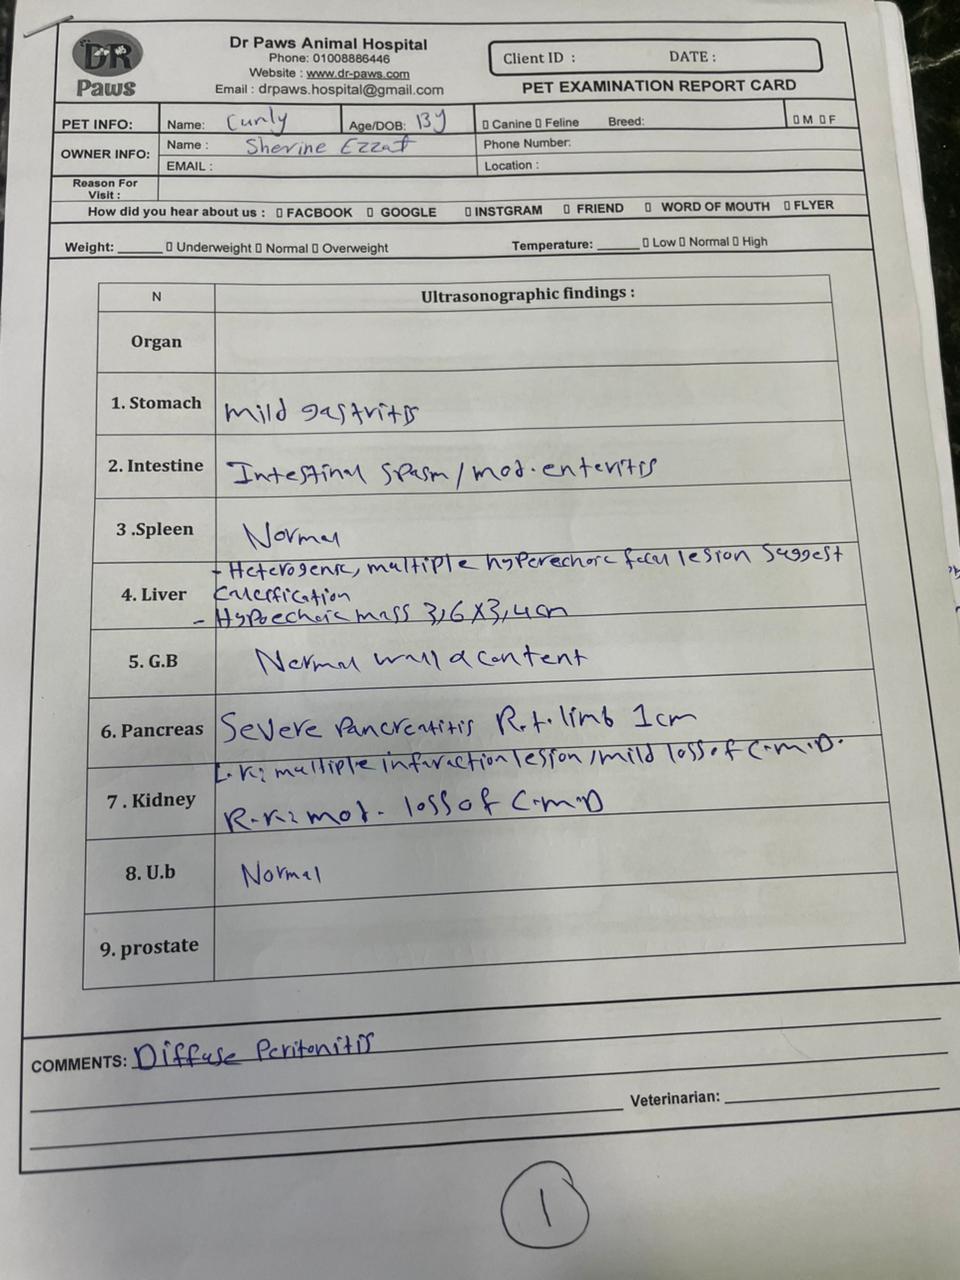 DR
Paws
Dr Paws Animal Hospital
Phone: 01008886446
Website : www.dr-paws.com
Email : drpaws.hospital@gmail.com
Client ID : DATE :
PET EXAMINATION REPORT CARD
PET INFO: Name: Curly Age/DOB: 13y ▯ Canine ▯ Feline Breed: ▯ M ▯ F
OWNER INFO: Name : Sherine Ezzat Phone Number:
EMAIL : Location :
Reason For
Visit :
How did you hear about us : ▯ FACBOOK ▯ GOOGLE ▯ INSTGRAM ▯ FRIEND ▯ WORD OF MOUTH ▯ FLYER
Weight: ______ ▯ Underweight ▯ Normal ▯ Overweight Temperature: ______ ▯ Low ▯ Normal ▯ High
N Ultrasonographic findings :
Organ
1. Stomach mild gastritis
2. Intestine Intestinal spasm / mod. enteritis
3 .Spleen Normal
4. Liver - Heterogenic, multiple hyperechoic focal lesion suggest
calcification
- Hypoechoic mass 3,6 X 3,4 cm
5. G.B Normal wall & content
6. Pancreas Severe Pancreatitis R.t. limb 1cm
7 . Kidney L.K: multiple infaraction lesion / mild loss of C.m.D.
R.K: mod. loss of C.m.D
8. U.b Normal
9. prostate
COMMENTS: Diffuse Peritonitis
Veterinarian:
1